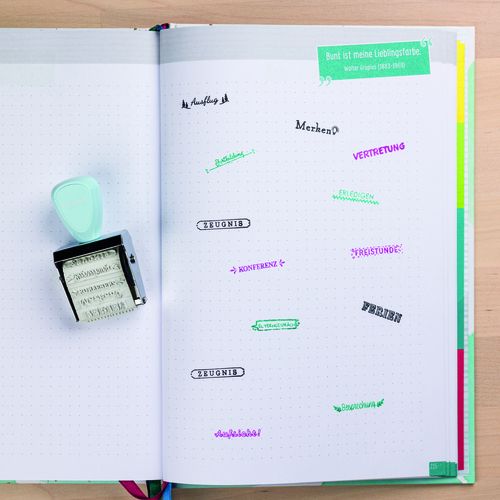 Bunt ist meine Lieblingsfarbe.
Walter Gropius (1883-1969)
Ausflug
Merken
VERTRETUNG
Fortbildung
ERLEDIGEN
ZEUGNIS
FREISTUNDE
KONFERENZ
FERIEN
ELTERNGESPRÄCH
ZEUGNIS
Besprechung
Aufsicht!